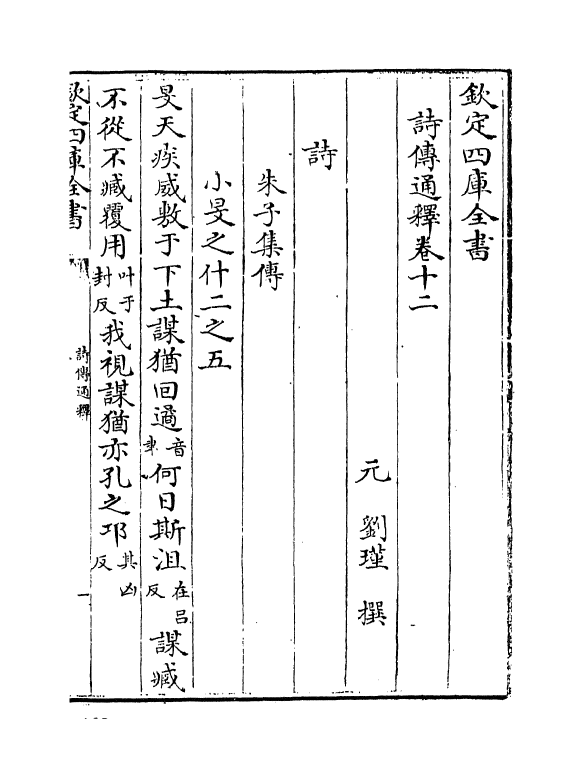 欽定四庫全書
詩傳通釋卷十二
元 劉瑾 撰
詩
朱子集傳
小旻之什二之五
旻天疾威敷于下土謀猶回遹音聿何日斯沮在呂反謀臧
不從不臧覆用叶于封反我視謀猶亦孔之邛其凶反
欽定四庫全書 詩傳通釋 一